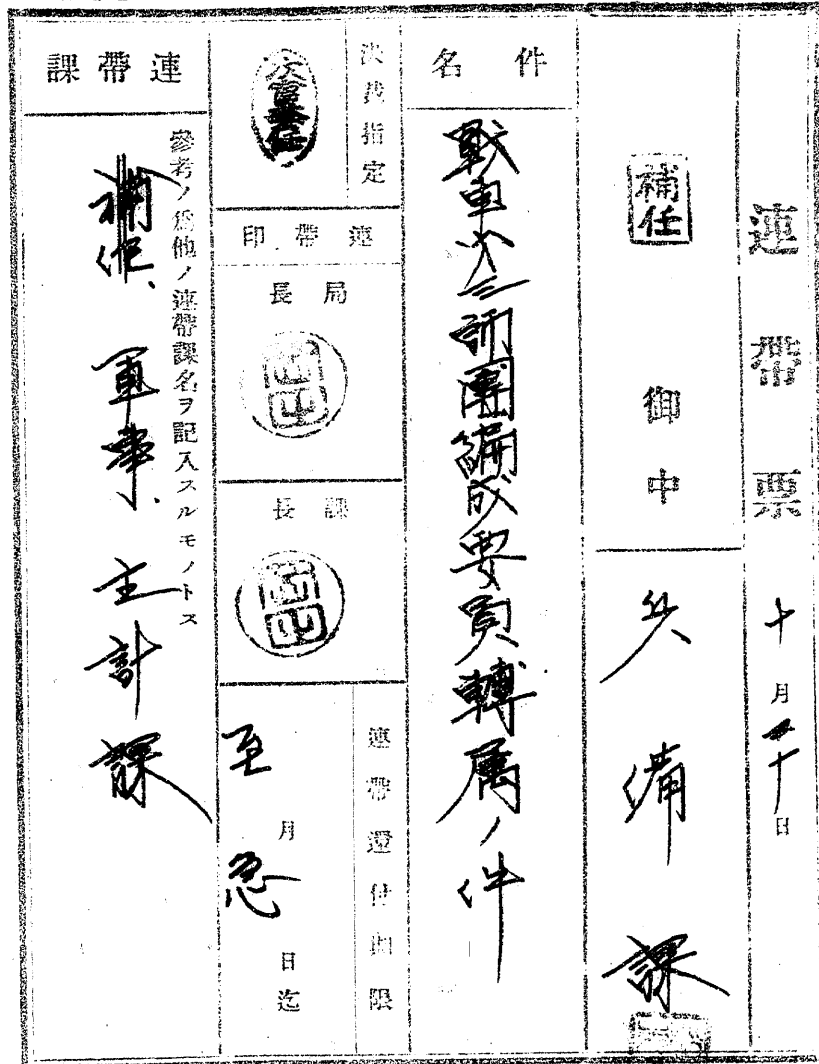 連帶票
十月 十日
補任 御中
兵備課
件名
戰車第三師團編成要員轉属ノ件
決裁指定
次官委任
連帶印
局長
課長
連帶還付期限
至急
月 日迄
連帶課
參考ノ爲他ノ連帶課名ヲ記入スルモノトス
補任、軍事、主計課